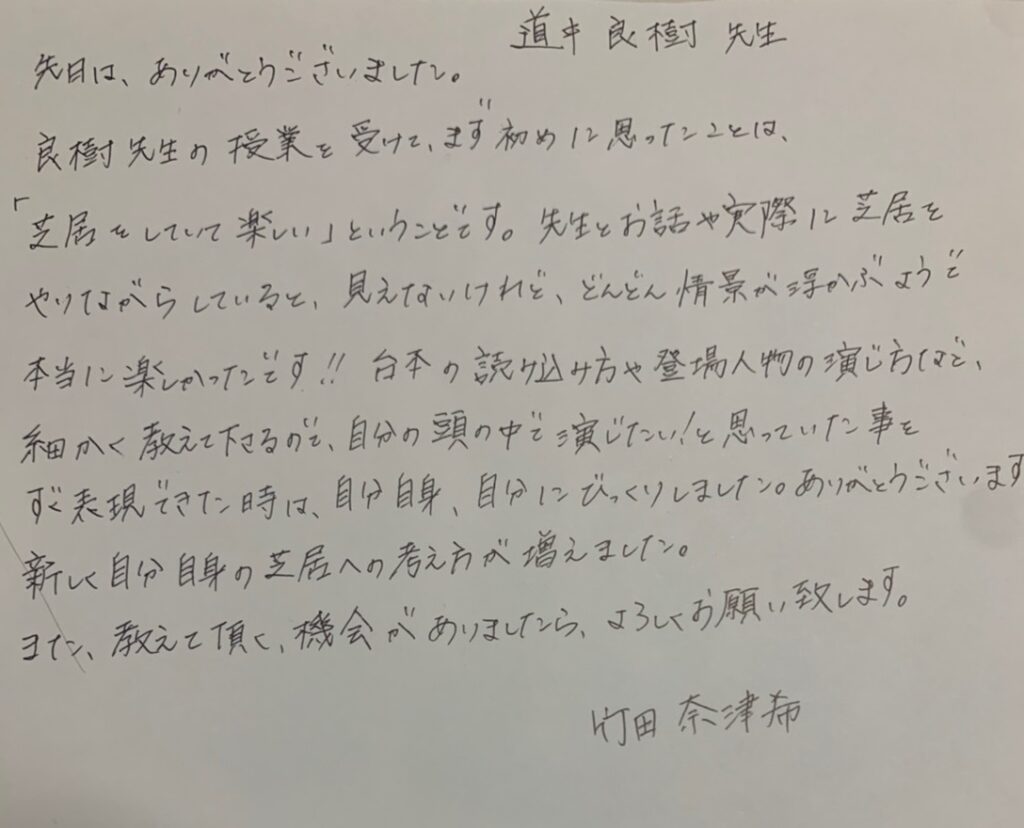 道井 良樹 先生
先日は、ありがとうございました。
良樹先生の授業を受けて、まず初めに思ったことは、
「芝居をしていて楽しい」ということです。先生とお話や実際に芝居を
やりながらしていると、見えないけれど、どんどん情景が浮かぶようで
本当に楽しかったです!! 台本の読み込み方や登場人物の演じ方など、
細かく教えて下さるので、自分の頭の中で演じたい!と思っていた事を
すぐ表現できた時は、自分自身、自分にびっくりしました。ありがとうございます
新しく自分自身の芝居への考え方が増えました。
また、教えて頂く、機会がありましたら、よろしくお願い致します。
竹田 奈津希